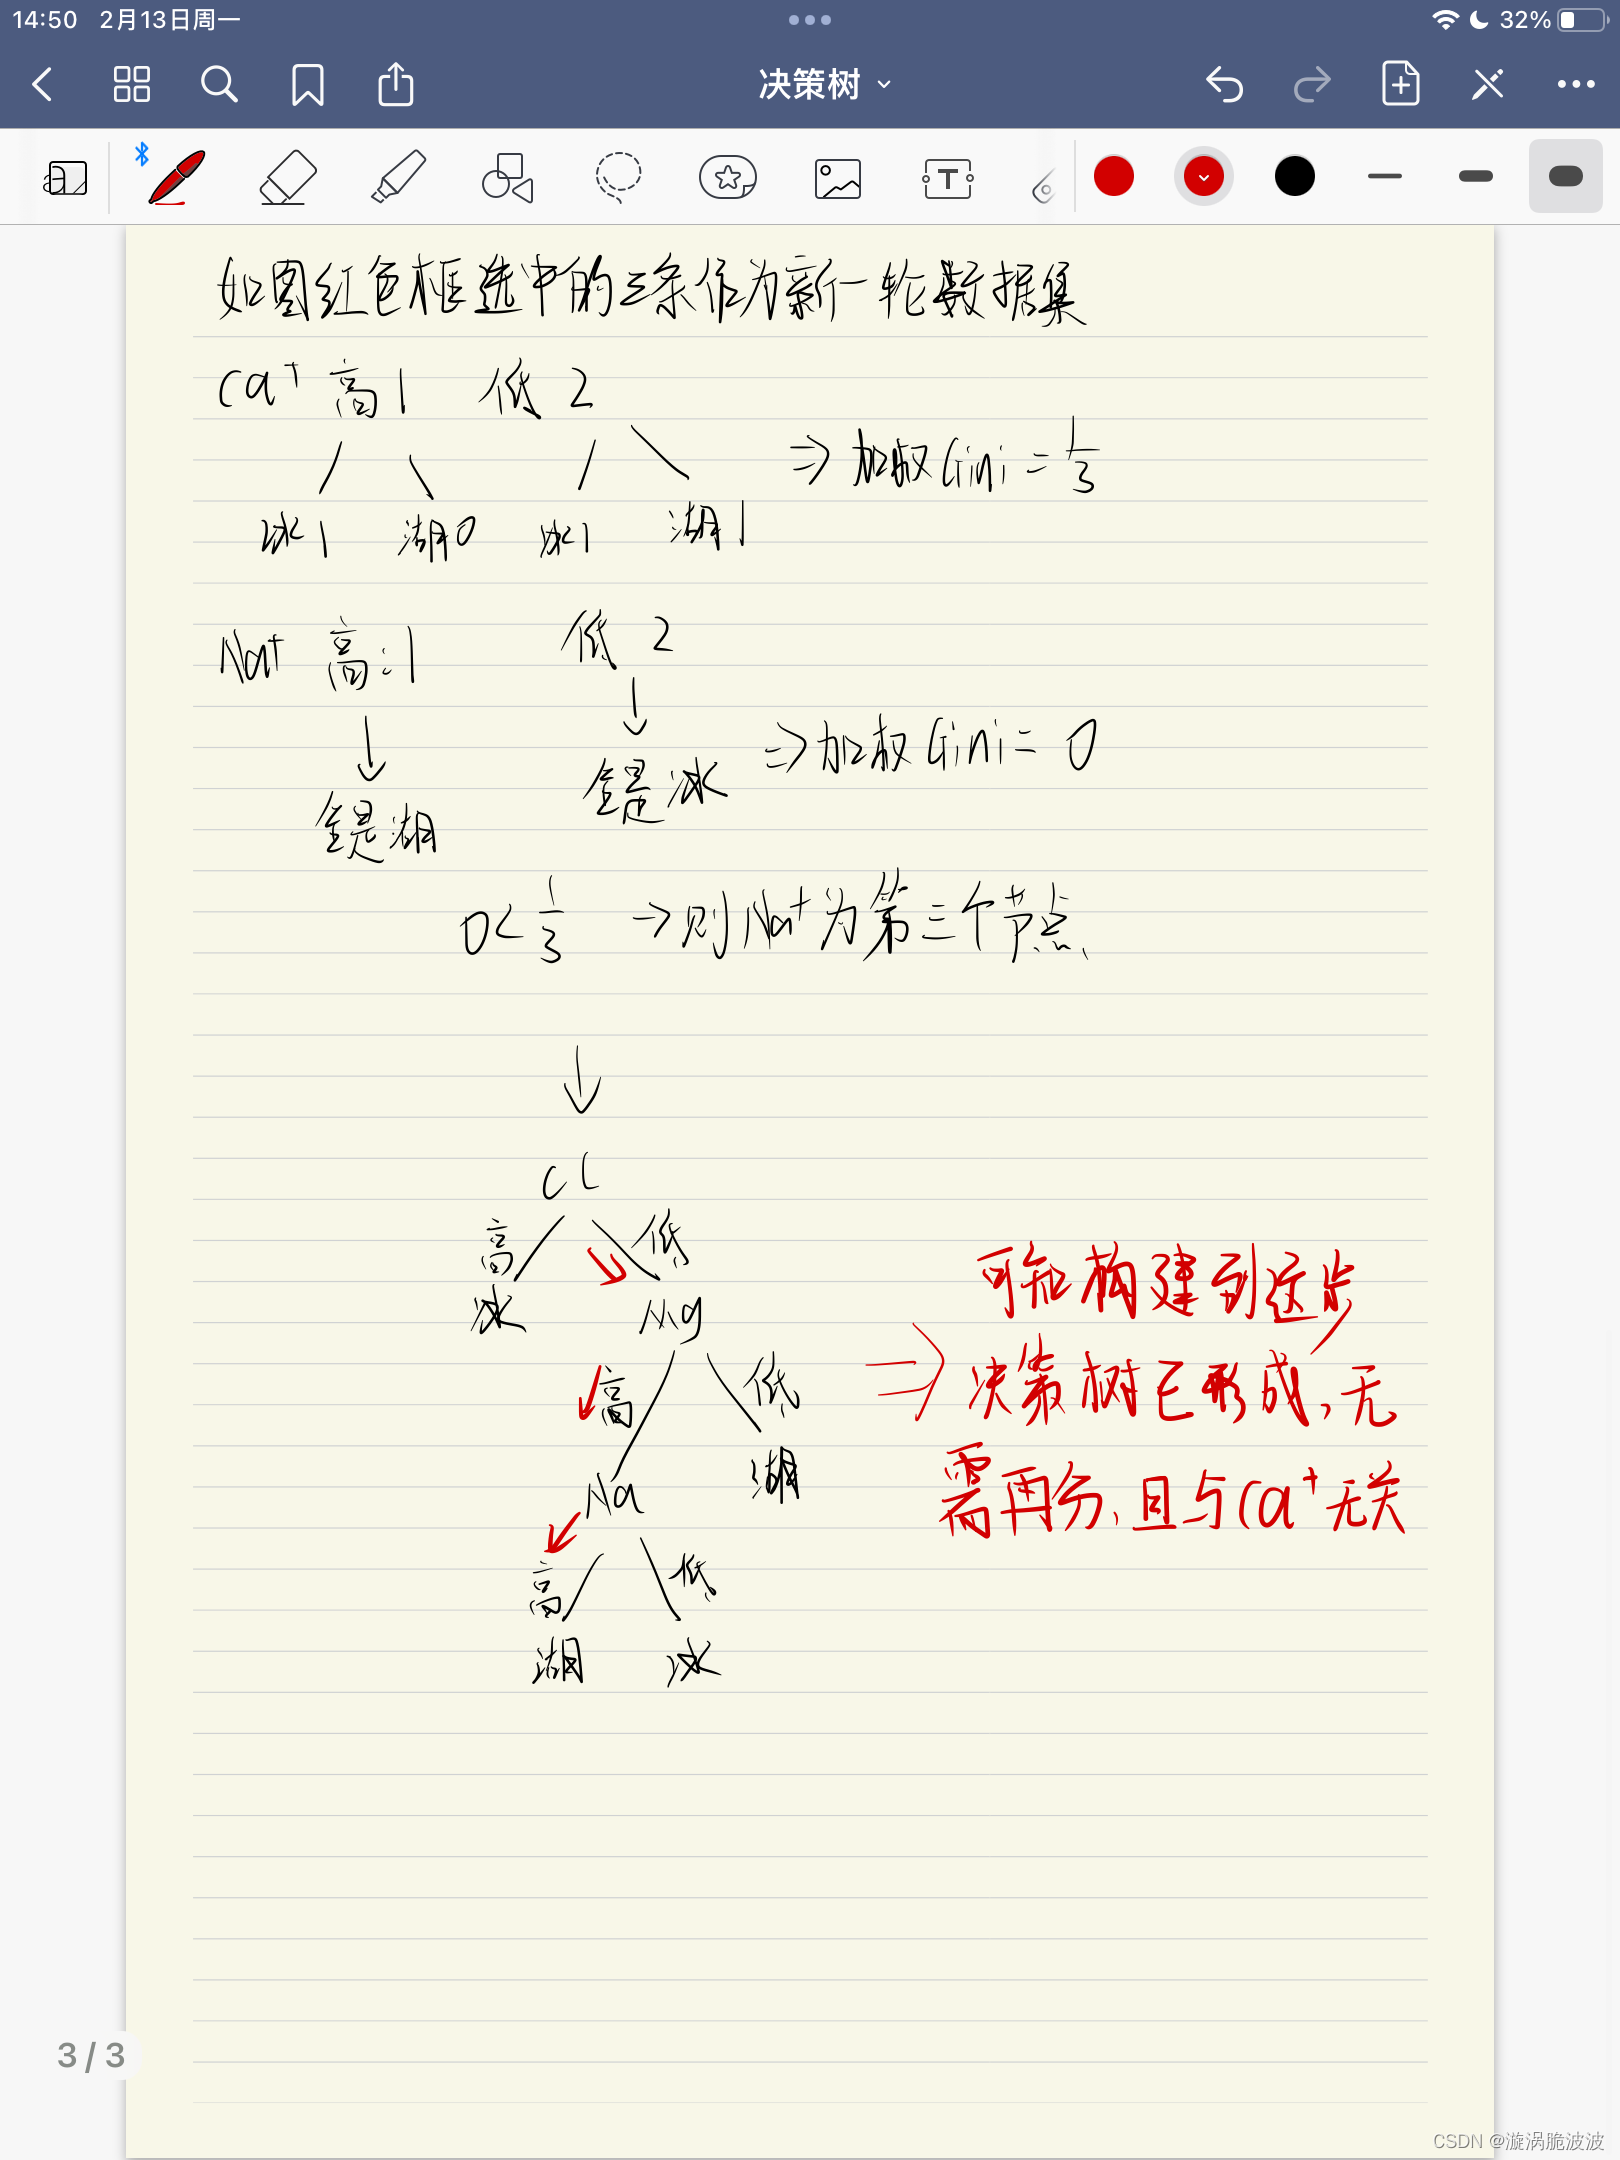 14:50 2月13日周一
32%
决策树
如图红色框选中的三条作为新一轮数据集
Ca⁺ 高1 低2
⇒加权Gini=1/3
冰1 湖0 冰1 湖1
Na⁺ 高:1 低2
⇒加权Gini=0
全是湖 全是冰
0<1/3 →则Na⁺为第三个节点
↓
Cl
高 低
冰 Mg
高 低
Na 湖
高 低
湖 冰
⇒ 可知构建到这步
决策树已形成,无
需再分,且与Ca⁺无关
3 / 3
CSDN @漩涡脆波波